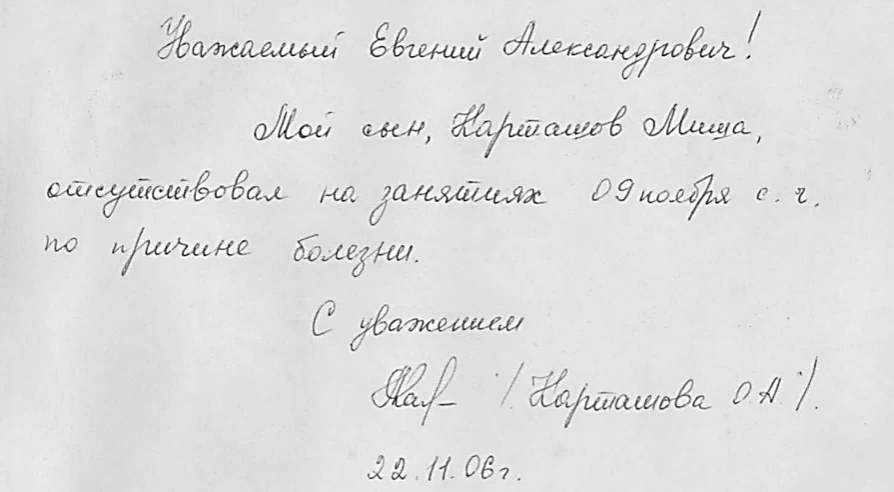 Уважаемый Евгений Александрович!
Мой сын, Карташов Миша,
отсутствовал на занятиях 09 ноября с. г.
по причине болезни.
С уважением
/Карташова О.А./.
22.11.06г.